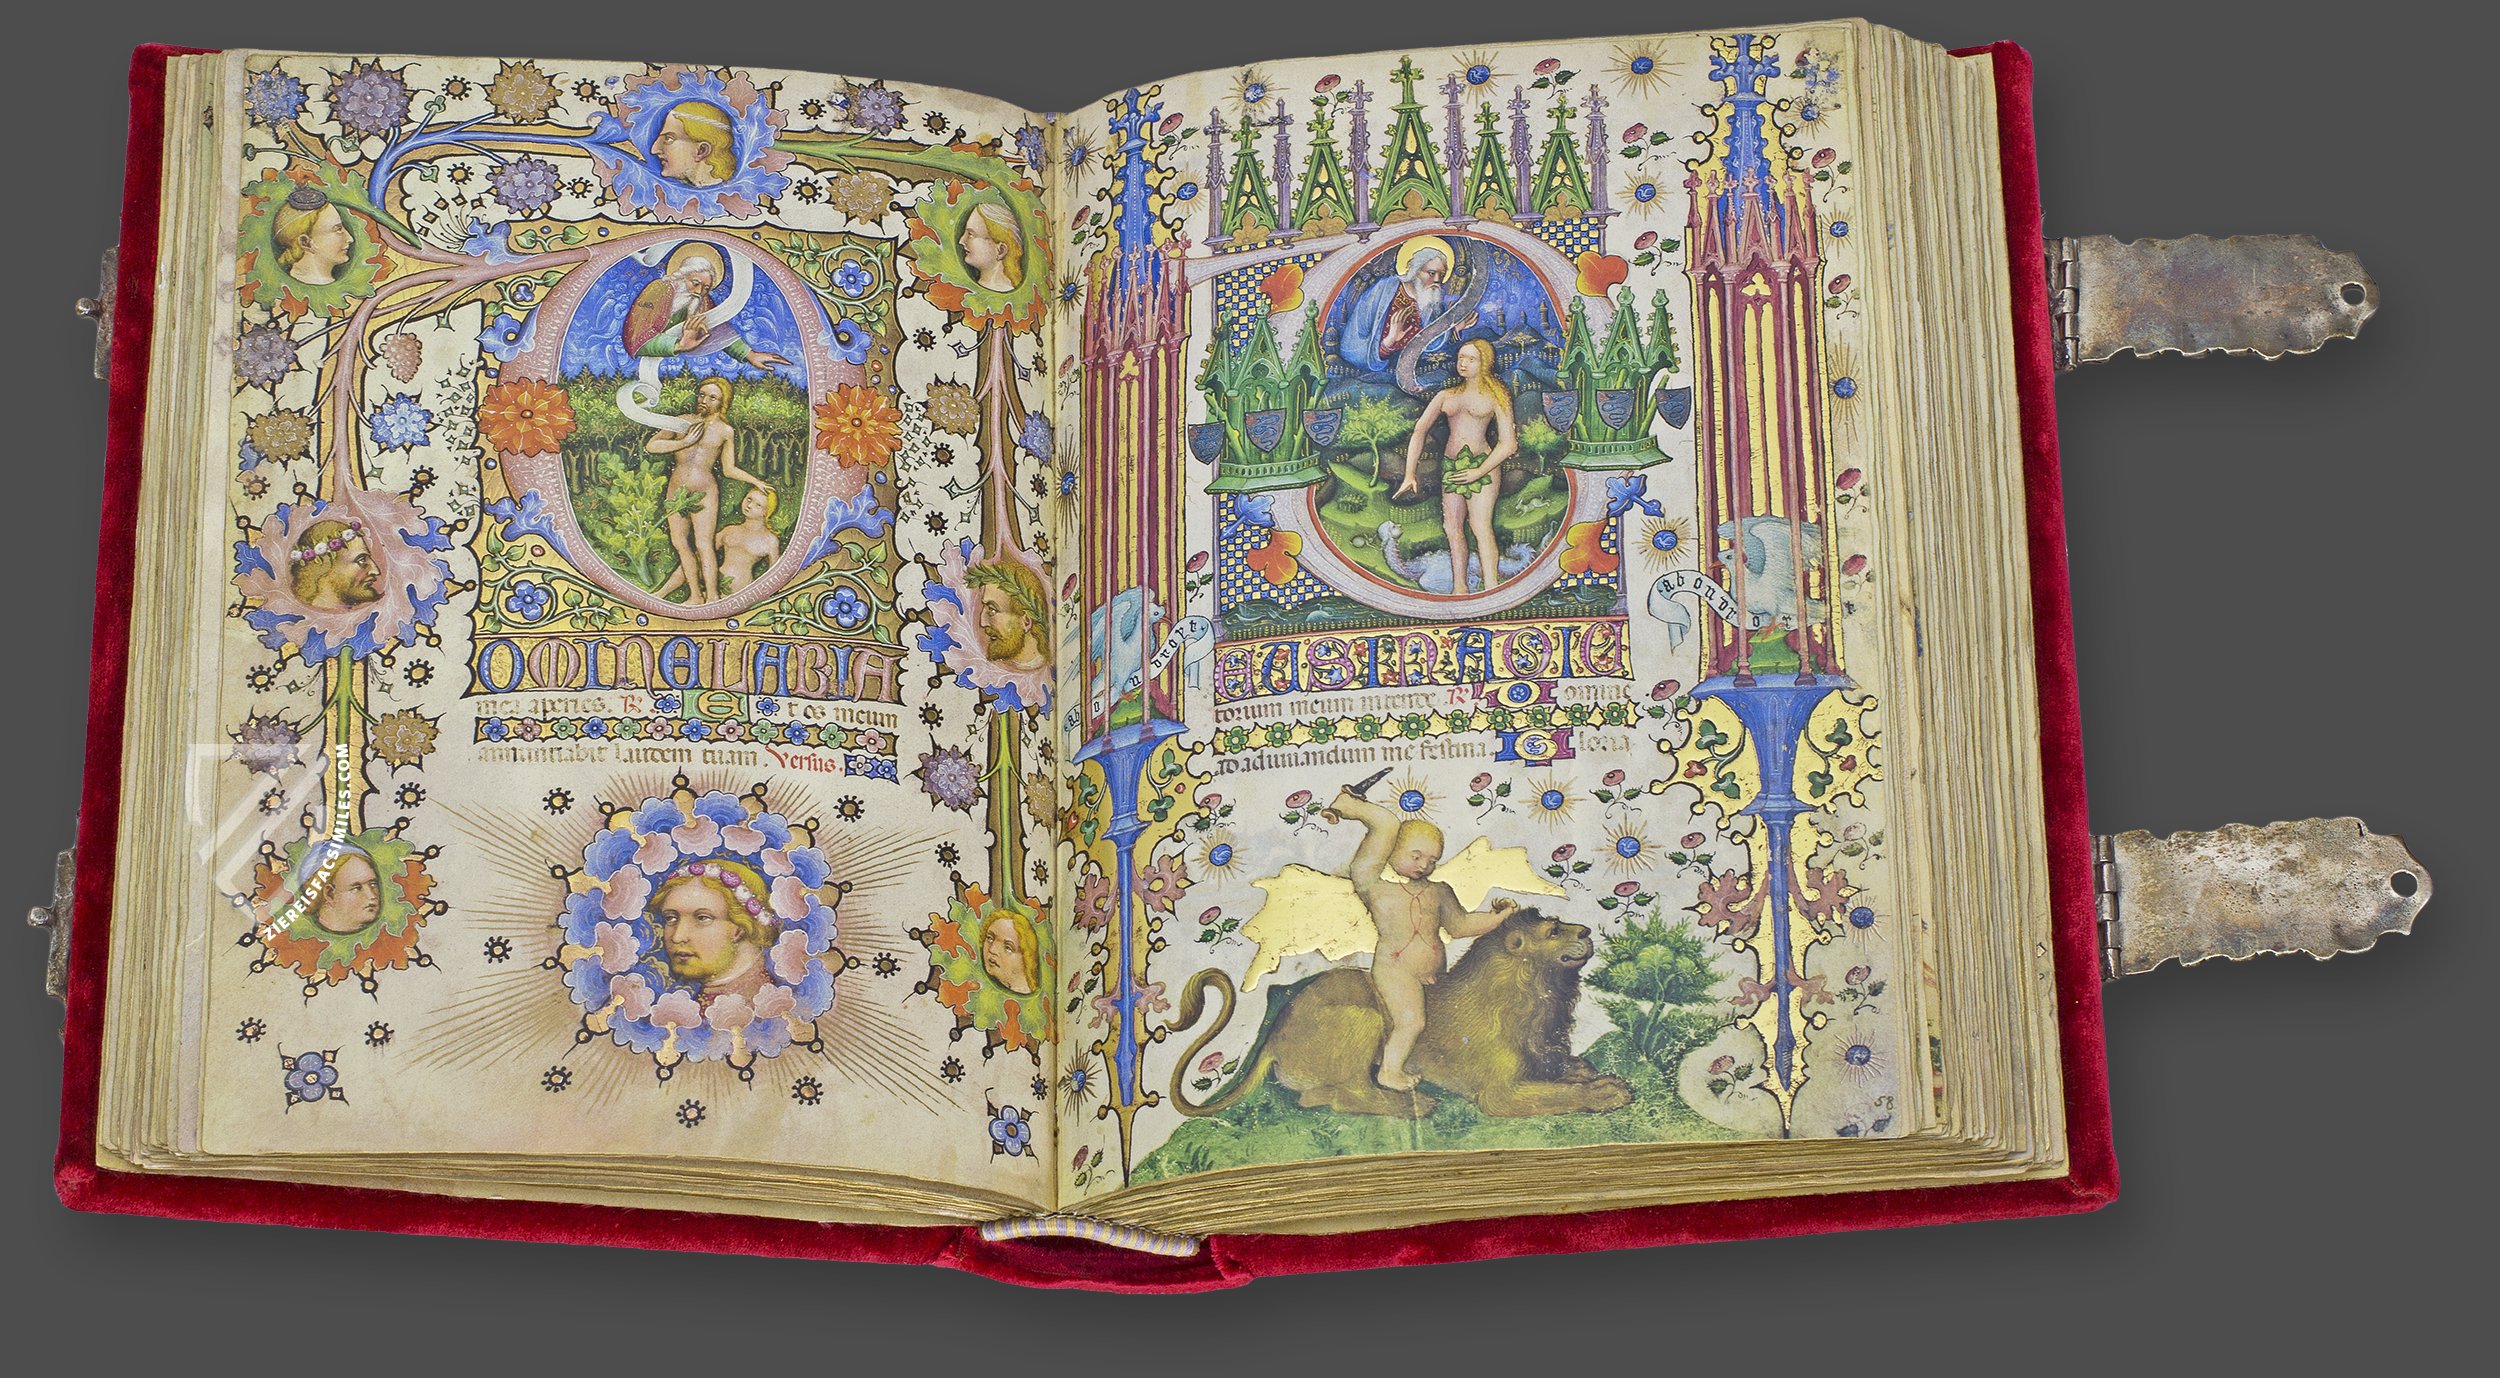 OMINE LABIA
mea aperies. R. Et os meum
annuntiabit laudem tuam. Versus.
ZIEREISFACSIMILES.COM
EUS IN ADIU
torium meum intende. R. Domine
ad adiuvandum me festina. Gloria.
a bon droyt.
a bon droyt
58